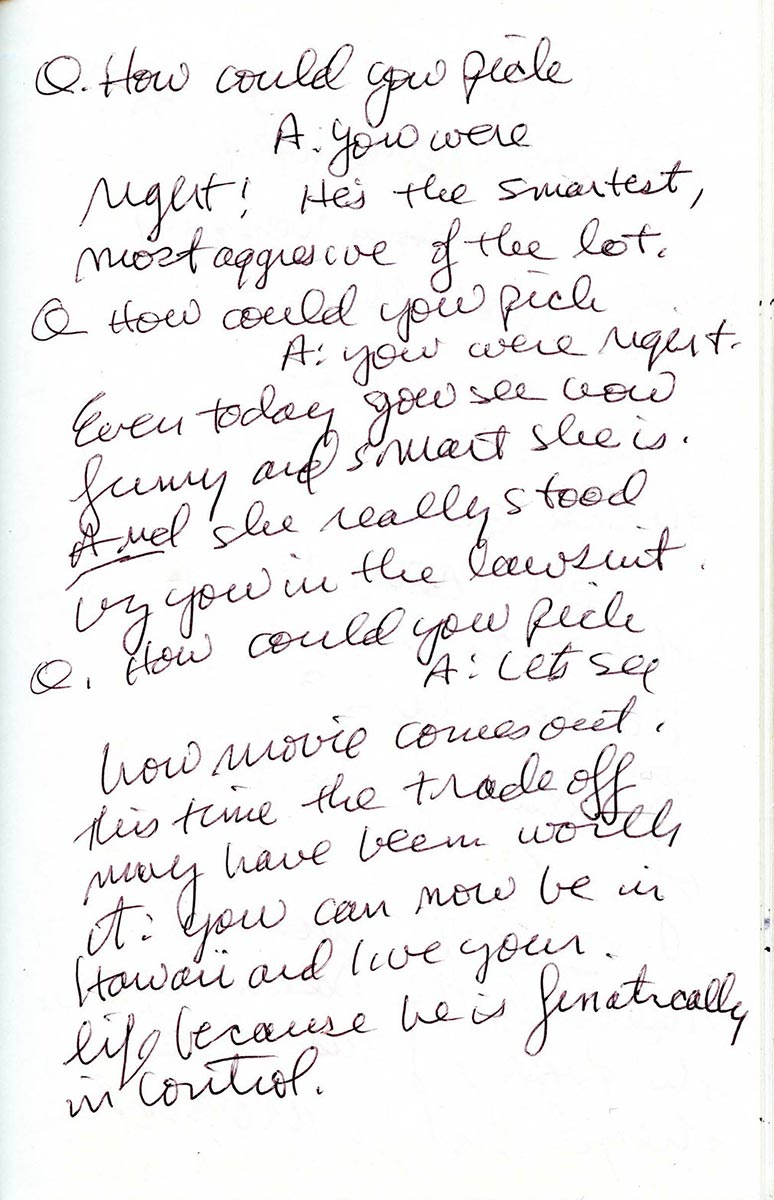 Q. How could you pick
A: You were
right! He's the smartest,
most aggresive of the lot.
Q How could you pick
A: you were right.
Even today you see how
funny and smart she is.
And she really stood
by you in the lawsuit.
Q. How could you pick
A: Lets see
how movie comes out.
this time the trade off
may have been worth
it: you can now be in
Hawaii and live your
life because he is fanatically
in control.